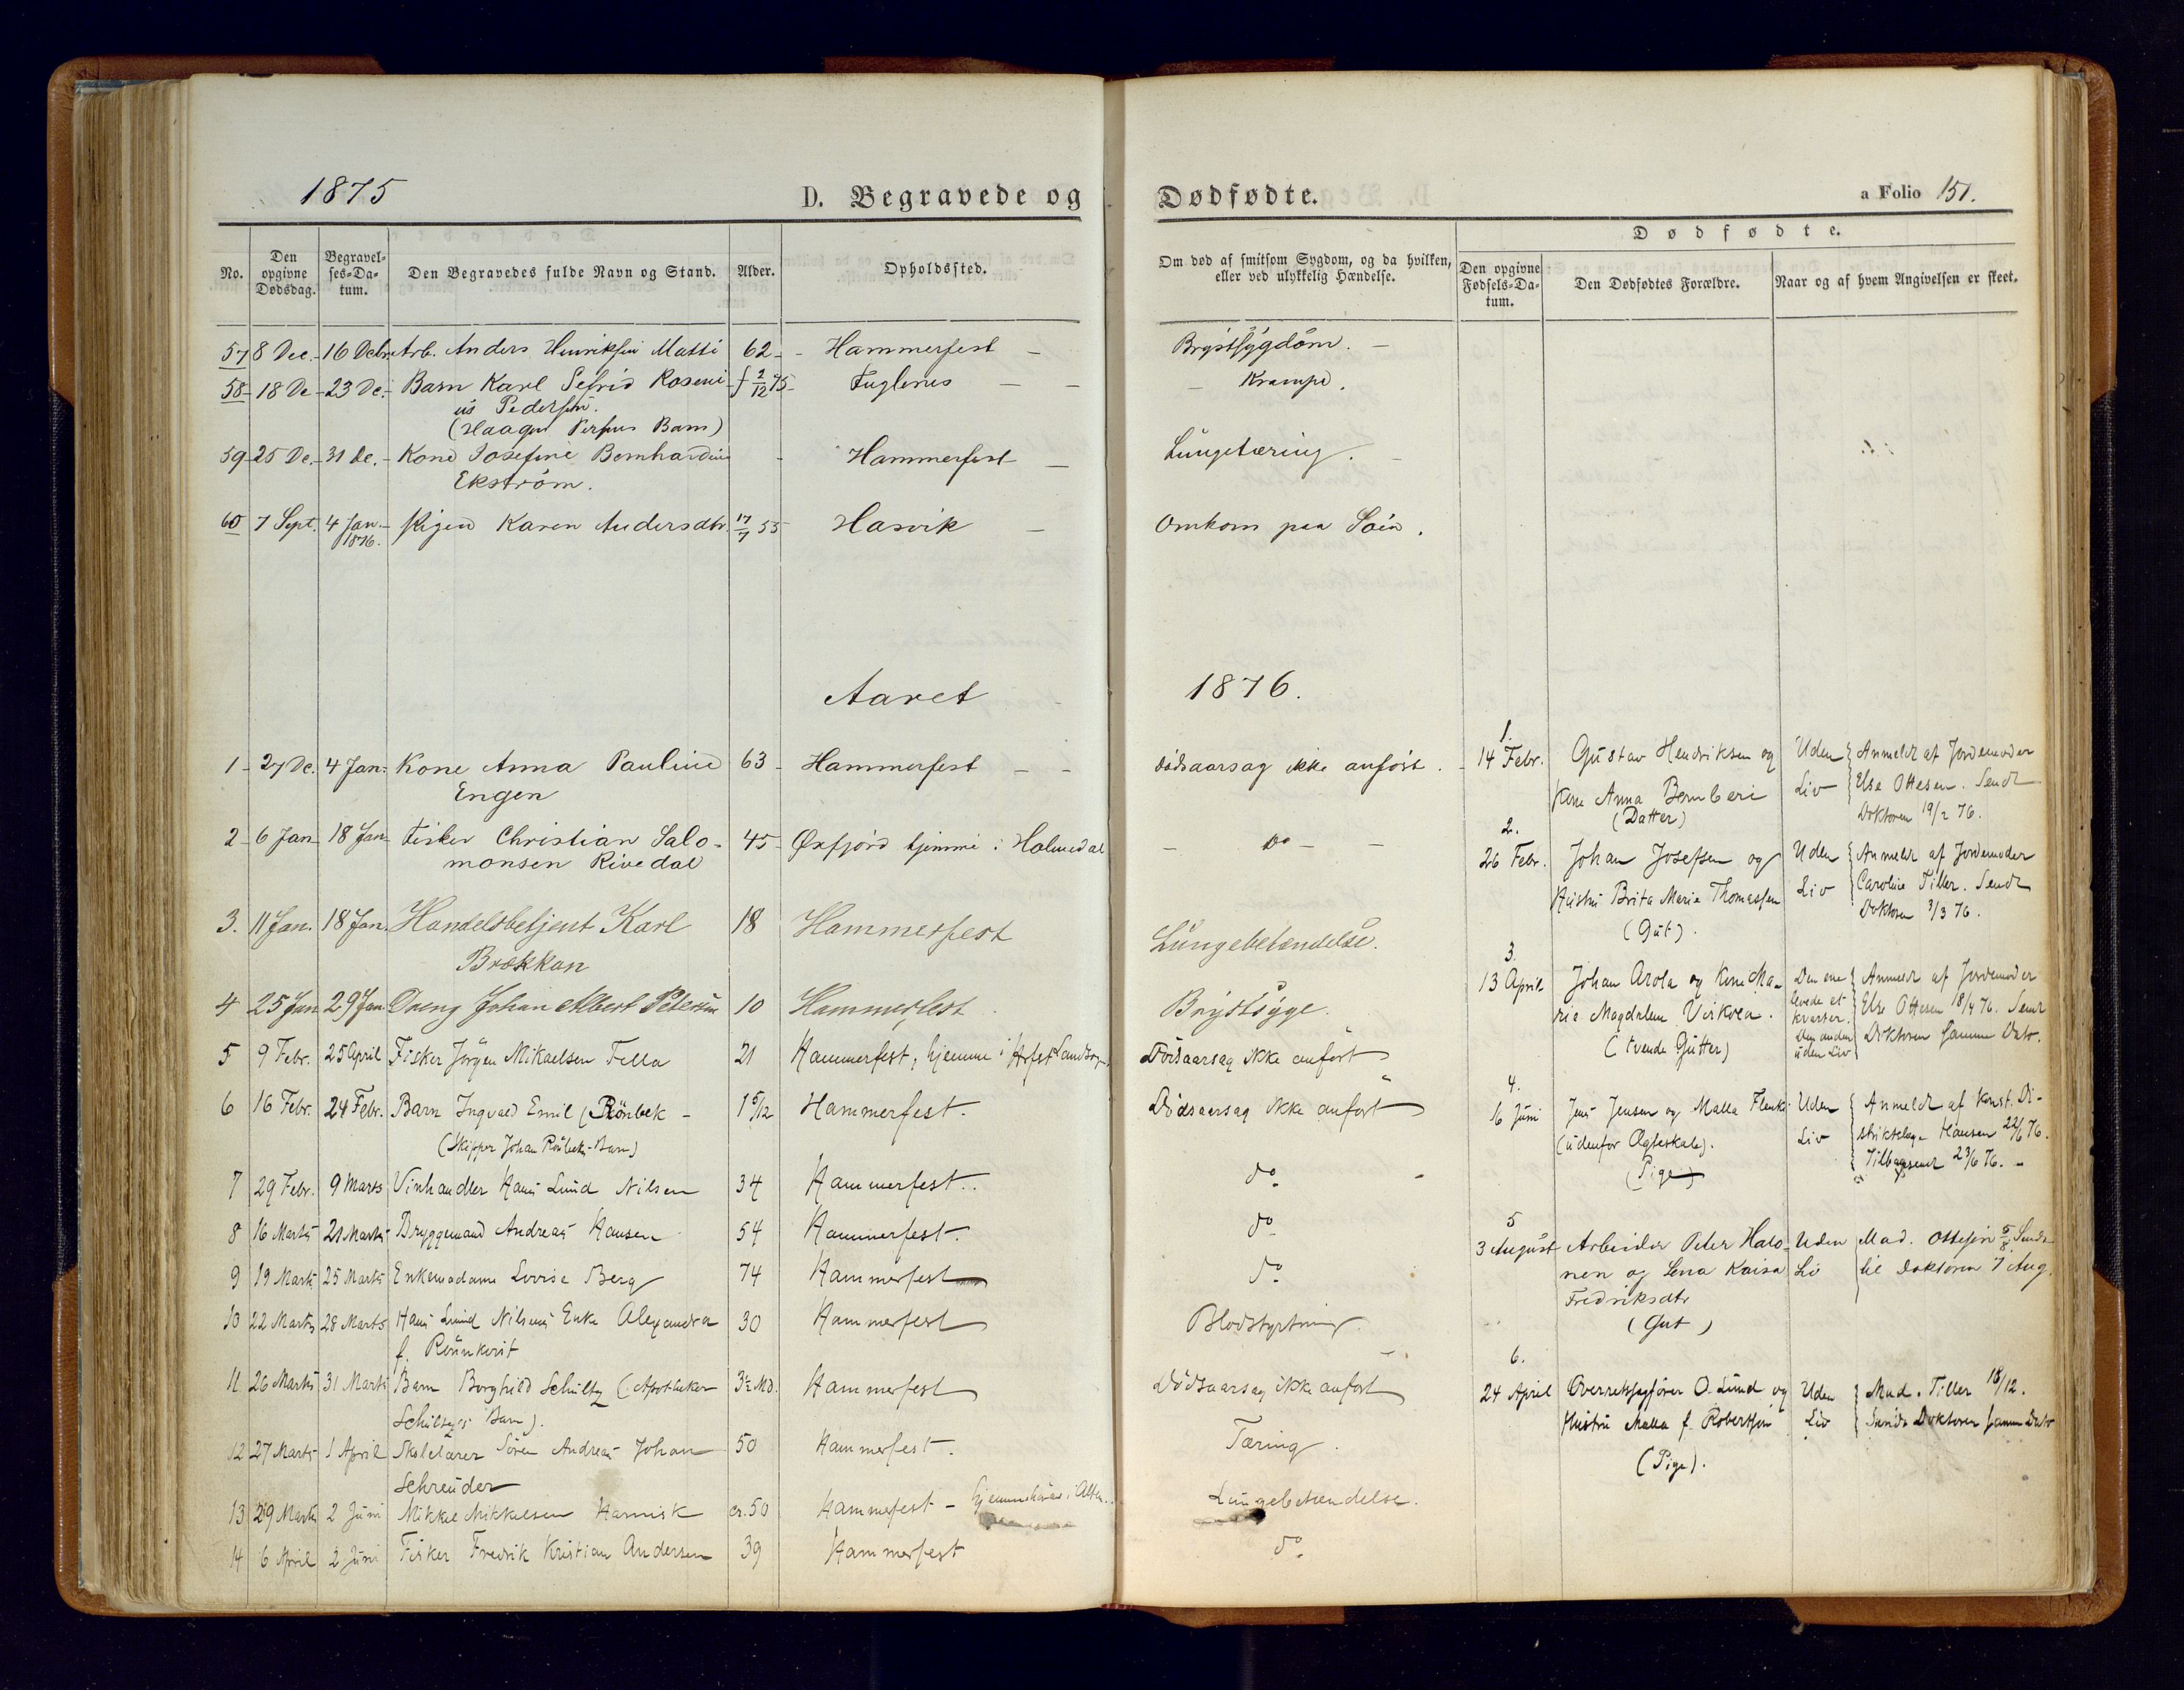 1875
D. Begravede og Dødfødte.
a Folio 151.
No.
Den opgivne Dødsdag.
Begravelses-Datum.
Den Begravedes fulde Navn og Stand.
Alder.
Opholdssted.
Om død af smitsom Sygdom, og da hvilken, eller ved ulykkelig Hændelse.
Dødfødte.
Den opgivne Fødsels-Datum.
Den Dødfødtes Forældre.
Naar og af hvem Angivelsen er skeet.
57 8 Dec. - 16 Debr Arb. Anders Henriksen Matti 62 - Hammerfest - Brystsygdom. -
58 - 18 De - 23 De. - Barn Karl Sefrid Roseni- f 2/12 75 - Fuglenes - - Krampe.
us Pedersen.
(Haagen Barn)
59 - 25 De. - 31 De. - Kone Josefine Bernhardine - Hammerfest - Lungetæring. -
Ekstrøm.
60 7 Sept. 4 Jan. - Pigen Karen Andersdtr. 17/7 55 Hasvik - Omkom paa Søen.
1876.
Aaret 1876.
1 - 27 De. 4 Jan: Kone Anna Pauline 63 - Hammerfest - - Dødsaarsag ikke anført. -
Engen
2 - 6 Jan - 18 Jan - Fisker Christian Salo- 45 - Øxfjord hjemme i Holmedal - Do - -
monsen Rivedal
3. 11 Jan. 18 Jan. Handelsbetjent Karl 18 Hammerfest Lungebetændelse.
Brækkan
4 25 Jan 29 Jan Dreng Johan Albert Petersen 10 Hammerfest. Brystsyge.
5 9 Febr. 25 April Fisker Jörgen Mikaelsen Fella 21 Hammerfest; hjemme i Hrfest Landsogn. Dødsaarsag ikke anført
6 16 Febr. 24 Febr. Barn Ingvald Emil (Rönbek - 1 5/12 Hammerfest. Dödsaarsag ikke anført
(Skipper Johan Rönbeks Barn)
7 29 Febr. 9 Marts Vinhandler Hans Lund Nilsen 34 Hammerfest. do
8 16 Marts 21 Marts Bryggemand Andreas Hansen 54 Hammerfest. do
9 19 Marts 25 Marts Enkemadame Lovise Berg 74 Hammerfest do
10 22 Marts 28 Marts Hans Lund Nilsens Enke Alexandra 30 Hammerfest Blodstyrtning
f.
11 26 Marts 31 Marts Barn Borghild Schultz (Apotheker 3½ Md. Hammerfest Dödsaarsag ikke anført
Schultz's Barn).
12 27 Marts 1 April Skolelærer Sören Andreas Johan 50 Hammerfest. Tæring.
Schreuder
13 29 Marts 2 Juni Mikkel Mikkelsen cr. 50 Hammerfest - hjemmehörende i Alten. Lungebetændelse.
14 6 April 2 Juni Fisker Fredrik Kristian Andersen 39 Hammerfest do
1.
14 Febr. Gustav Hendriksen og Uden Anmeldt af Jordemoder
Kone Anna Bomberi Liv Else Ottesen. Sendt
(Datter) Doktoren 19/2 76.
2.
26 Febr. Johan Josefsen og Uden Anmeldt af Jordemoder
Hustru Brita Maria Thomassen Liv Caroline Tiller. Sendt
(Gut). Doktoren 3/3 76.
3.
13 April Johan Arola og Kone Ma- Den ene Anmeldt af Jordemoder
ria Magdalena levede et Else Ottesen 18/4 76. Sendt
kvarter.
(tvende Gutter) Den anden Doktoren samme Dato.
uden Liv
4.
16 Juni Jens Jensen og Malla Uden Anmeldt af konst. Di-
(udenfor Ægteskab). Liv striktslæge Hansen 22/6 76.
(Pige) Tilbagesendt 23/6 76. -
5
3 August Arbeider Peter Halo- Uden Mad. Ottesen 5/8. Sendt
nen og Lena Kaisa Liv til Doktoren 7 Aug.
Fredriksdtr
(Gut)
6.
24 April Overretssagfører O. Lund og Uden Mad. Tiller 18/12.
Hustru Malla f. Robertsen Liv Sendt Doktoren samme Dato
(Pige).